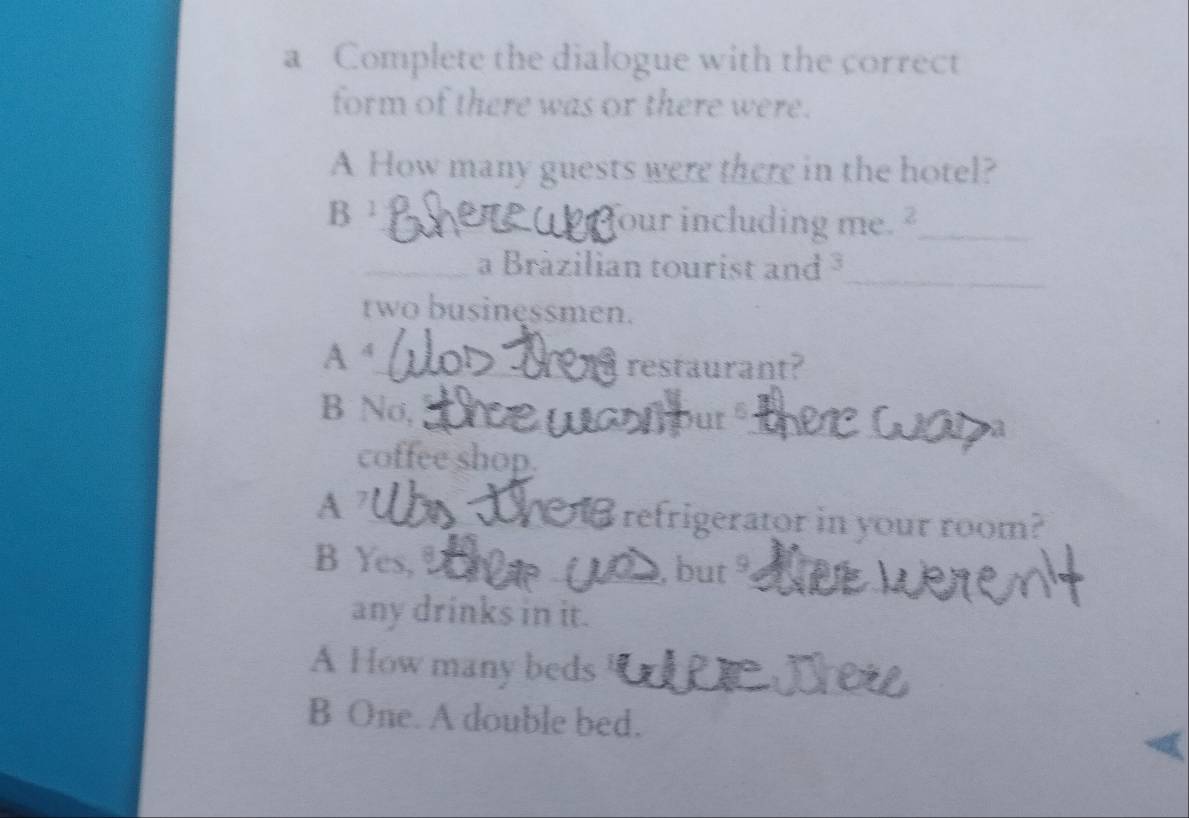 a Complete the dialogue with the correct
form of there was or there were.
A How many guests were there in the hotel?
B 1 there were four including me. 2 ______
______ a Brazilian tourist and 3 ______
two businessmen.
A 4 Was there restaurant?
B No, there wasn't but 6 there was a
coffee shop.
A 7 Was there refrigerator in your room?
B Yes, 8 there was, but 9 there weren't
any drinks in it.
A How many beds were there
B One. A double bed.